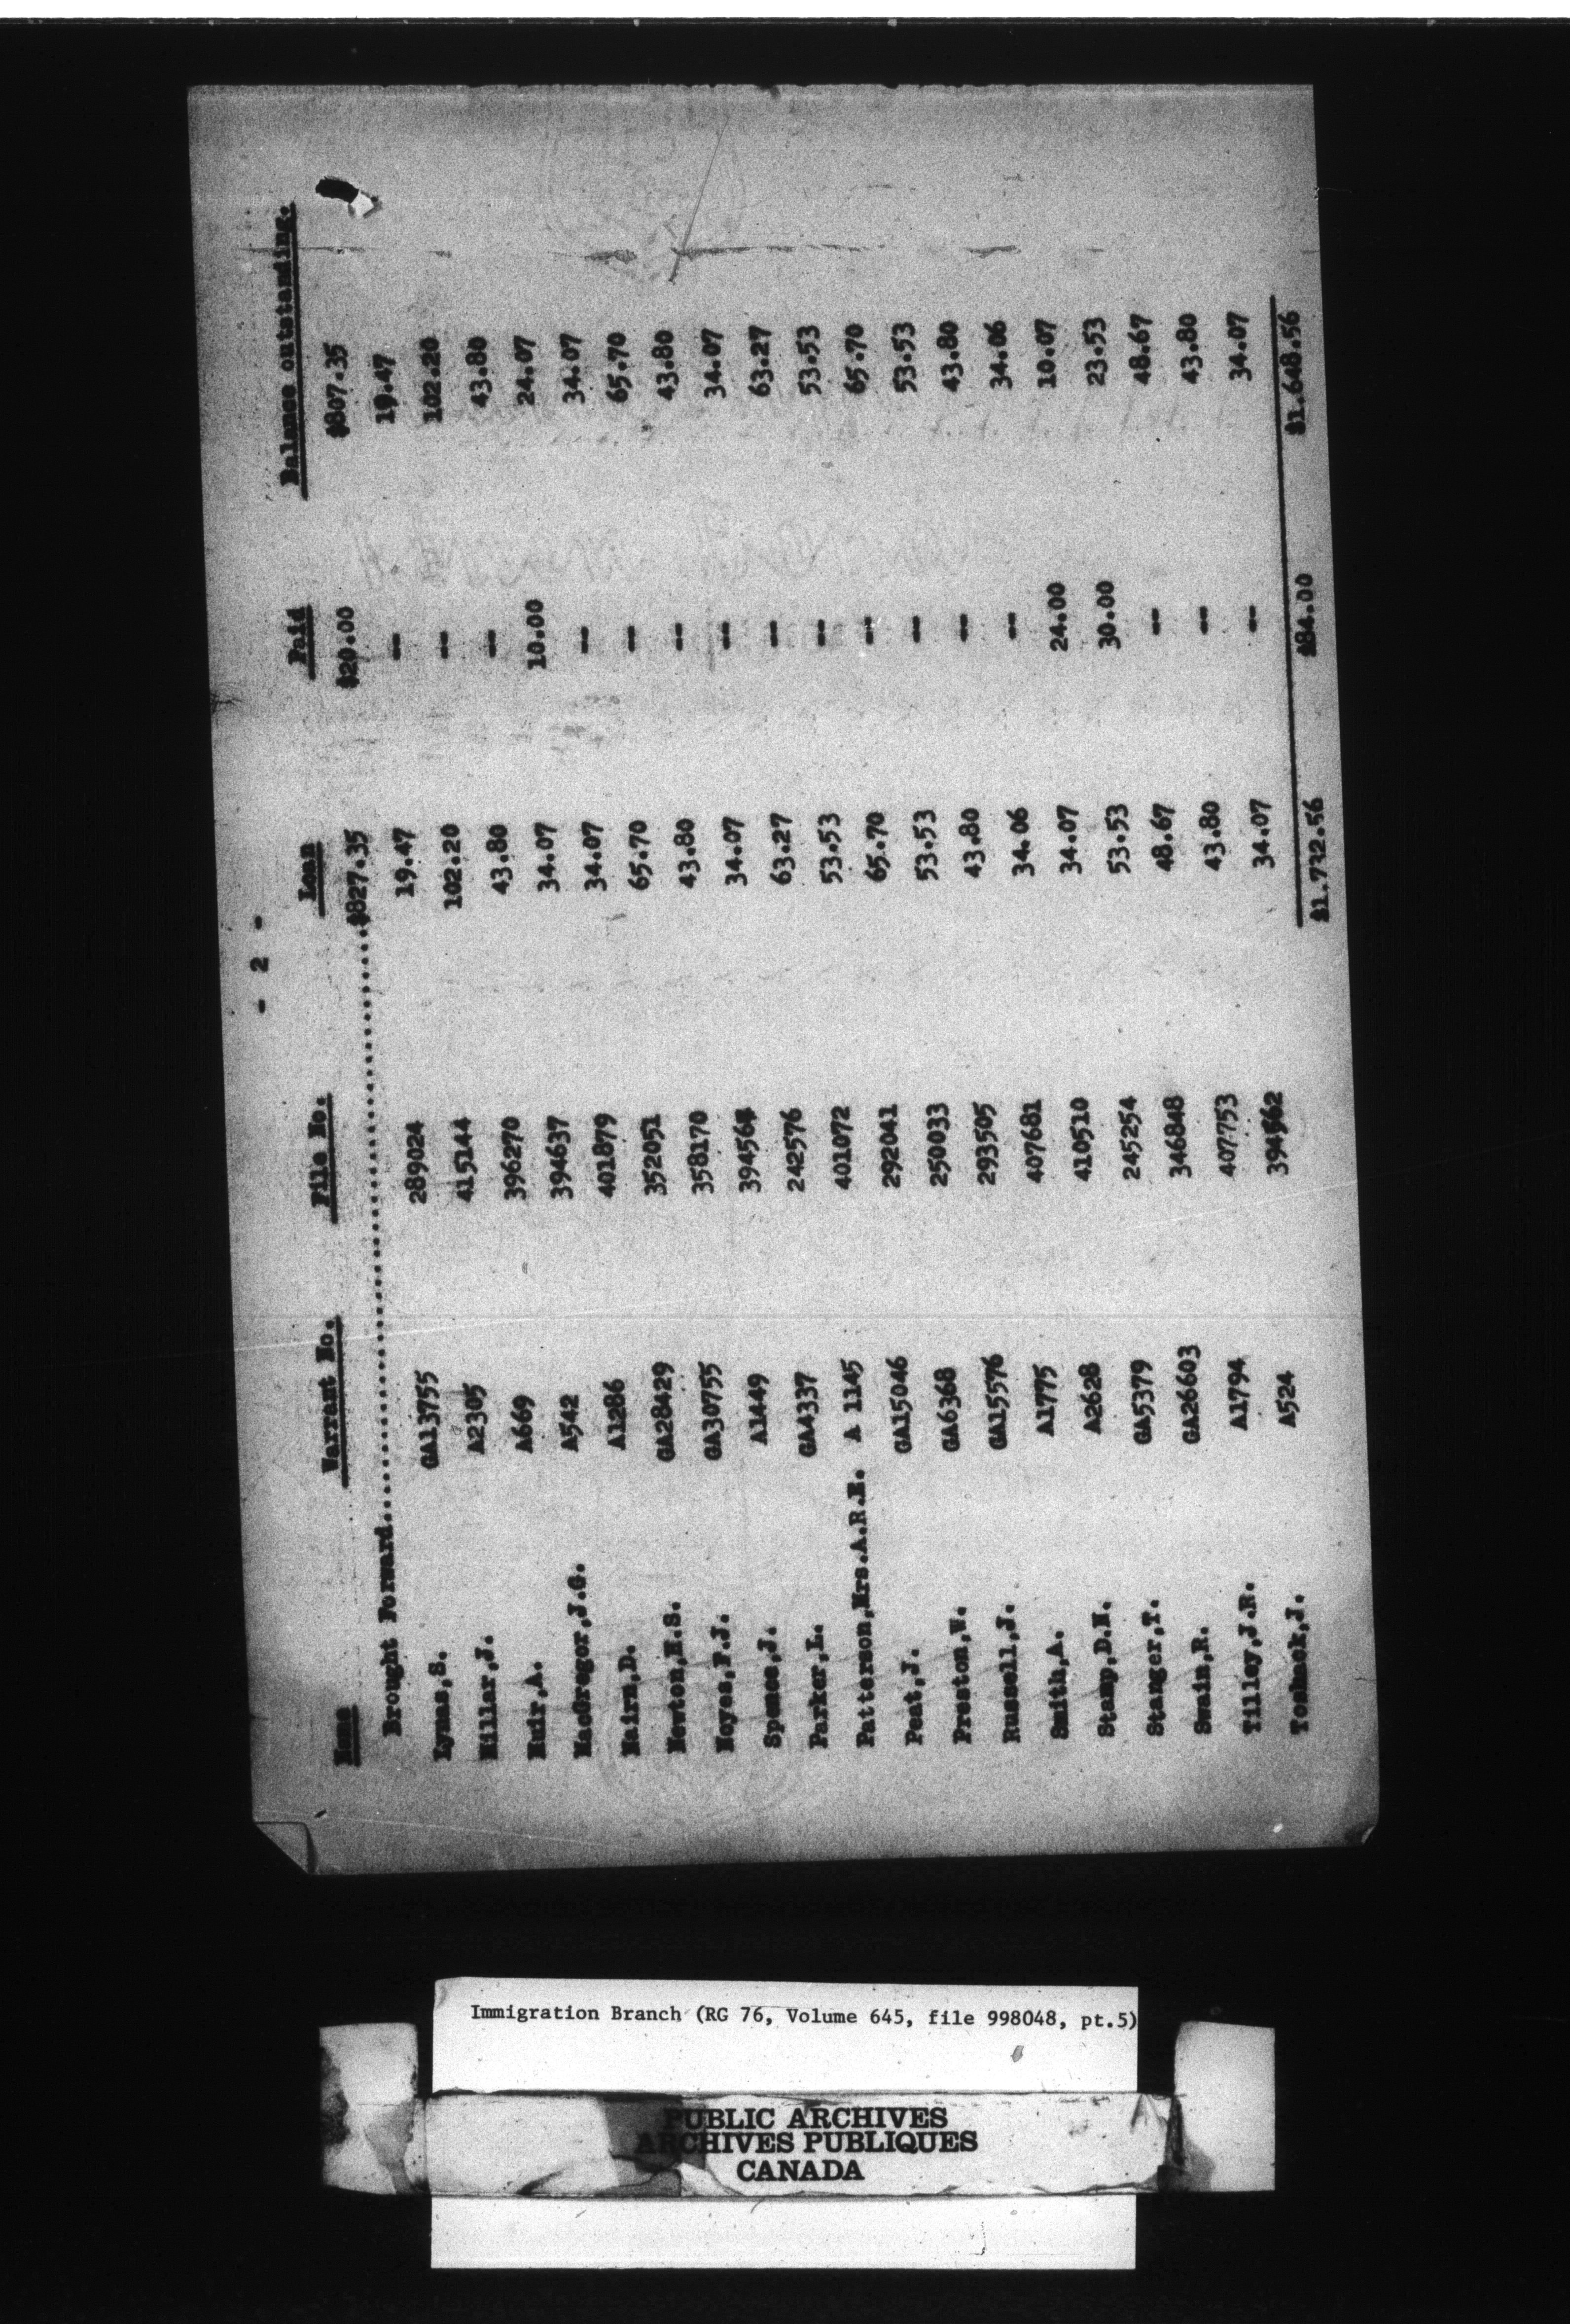 - 2 -
Name Warrant No. File No. Loan Paid Balance outstanding.
Brought Forward................................................$827.35 $20.00 $807.35
Lynas,S. GA13755 289024 19.47 -- 19.47
Millar,J. A2305 415144 102.20 -- 102.20
Muir,A. A669 396270 43.80 -- 43.80
MacGregor,J.G. A542 394637 34.07 10.00 24.07
Nairn,D. A1286 401879 34.07 -- 34.07
Newton,H.S. GA28429 352051 65.70 -- 65.70
Noyes,F.J. GA30755 358170 43.80 -- 43.80
Spence,J. A1449 394564 34.07 -- 34.07
Parker,L. GA4337 242576 63.27 -- 63.27
Patterson,Mrs.A.R.E. A 1145 401072 53.53 -- 53.53
Peat,J. GA15046 292041 65.70 -- 65.70
Preston,W. GA6368 250033 53.53 -- 53.53
Russell,J. GA15576 293505 43.80 -- 43.80
Smith,A. A1775 407681 34.06 -- 34.06
Stamp,D.H. A2628 410510 34.07 24.00 10.07
Stanger,T. GA5379 245254 53.53 30.00 23.53
Swain,R. GA26603 346848 48.67 -- 48.67
Tilley,J.R. A1794 407753 43.80 -- 43.80
Toshack,J. A524 394562 34.07 -- 34.07
$1.732.56 $84.00 $1.648.56
Immigration Branch (RG 76, Volume 645, file 998048, pt.5)
PUBLIC ARCHIVES
ARCHIVES PUBLIQUES
CANADA